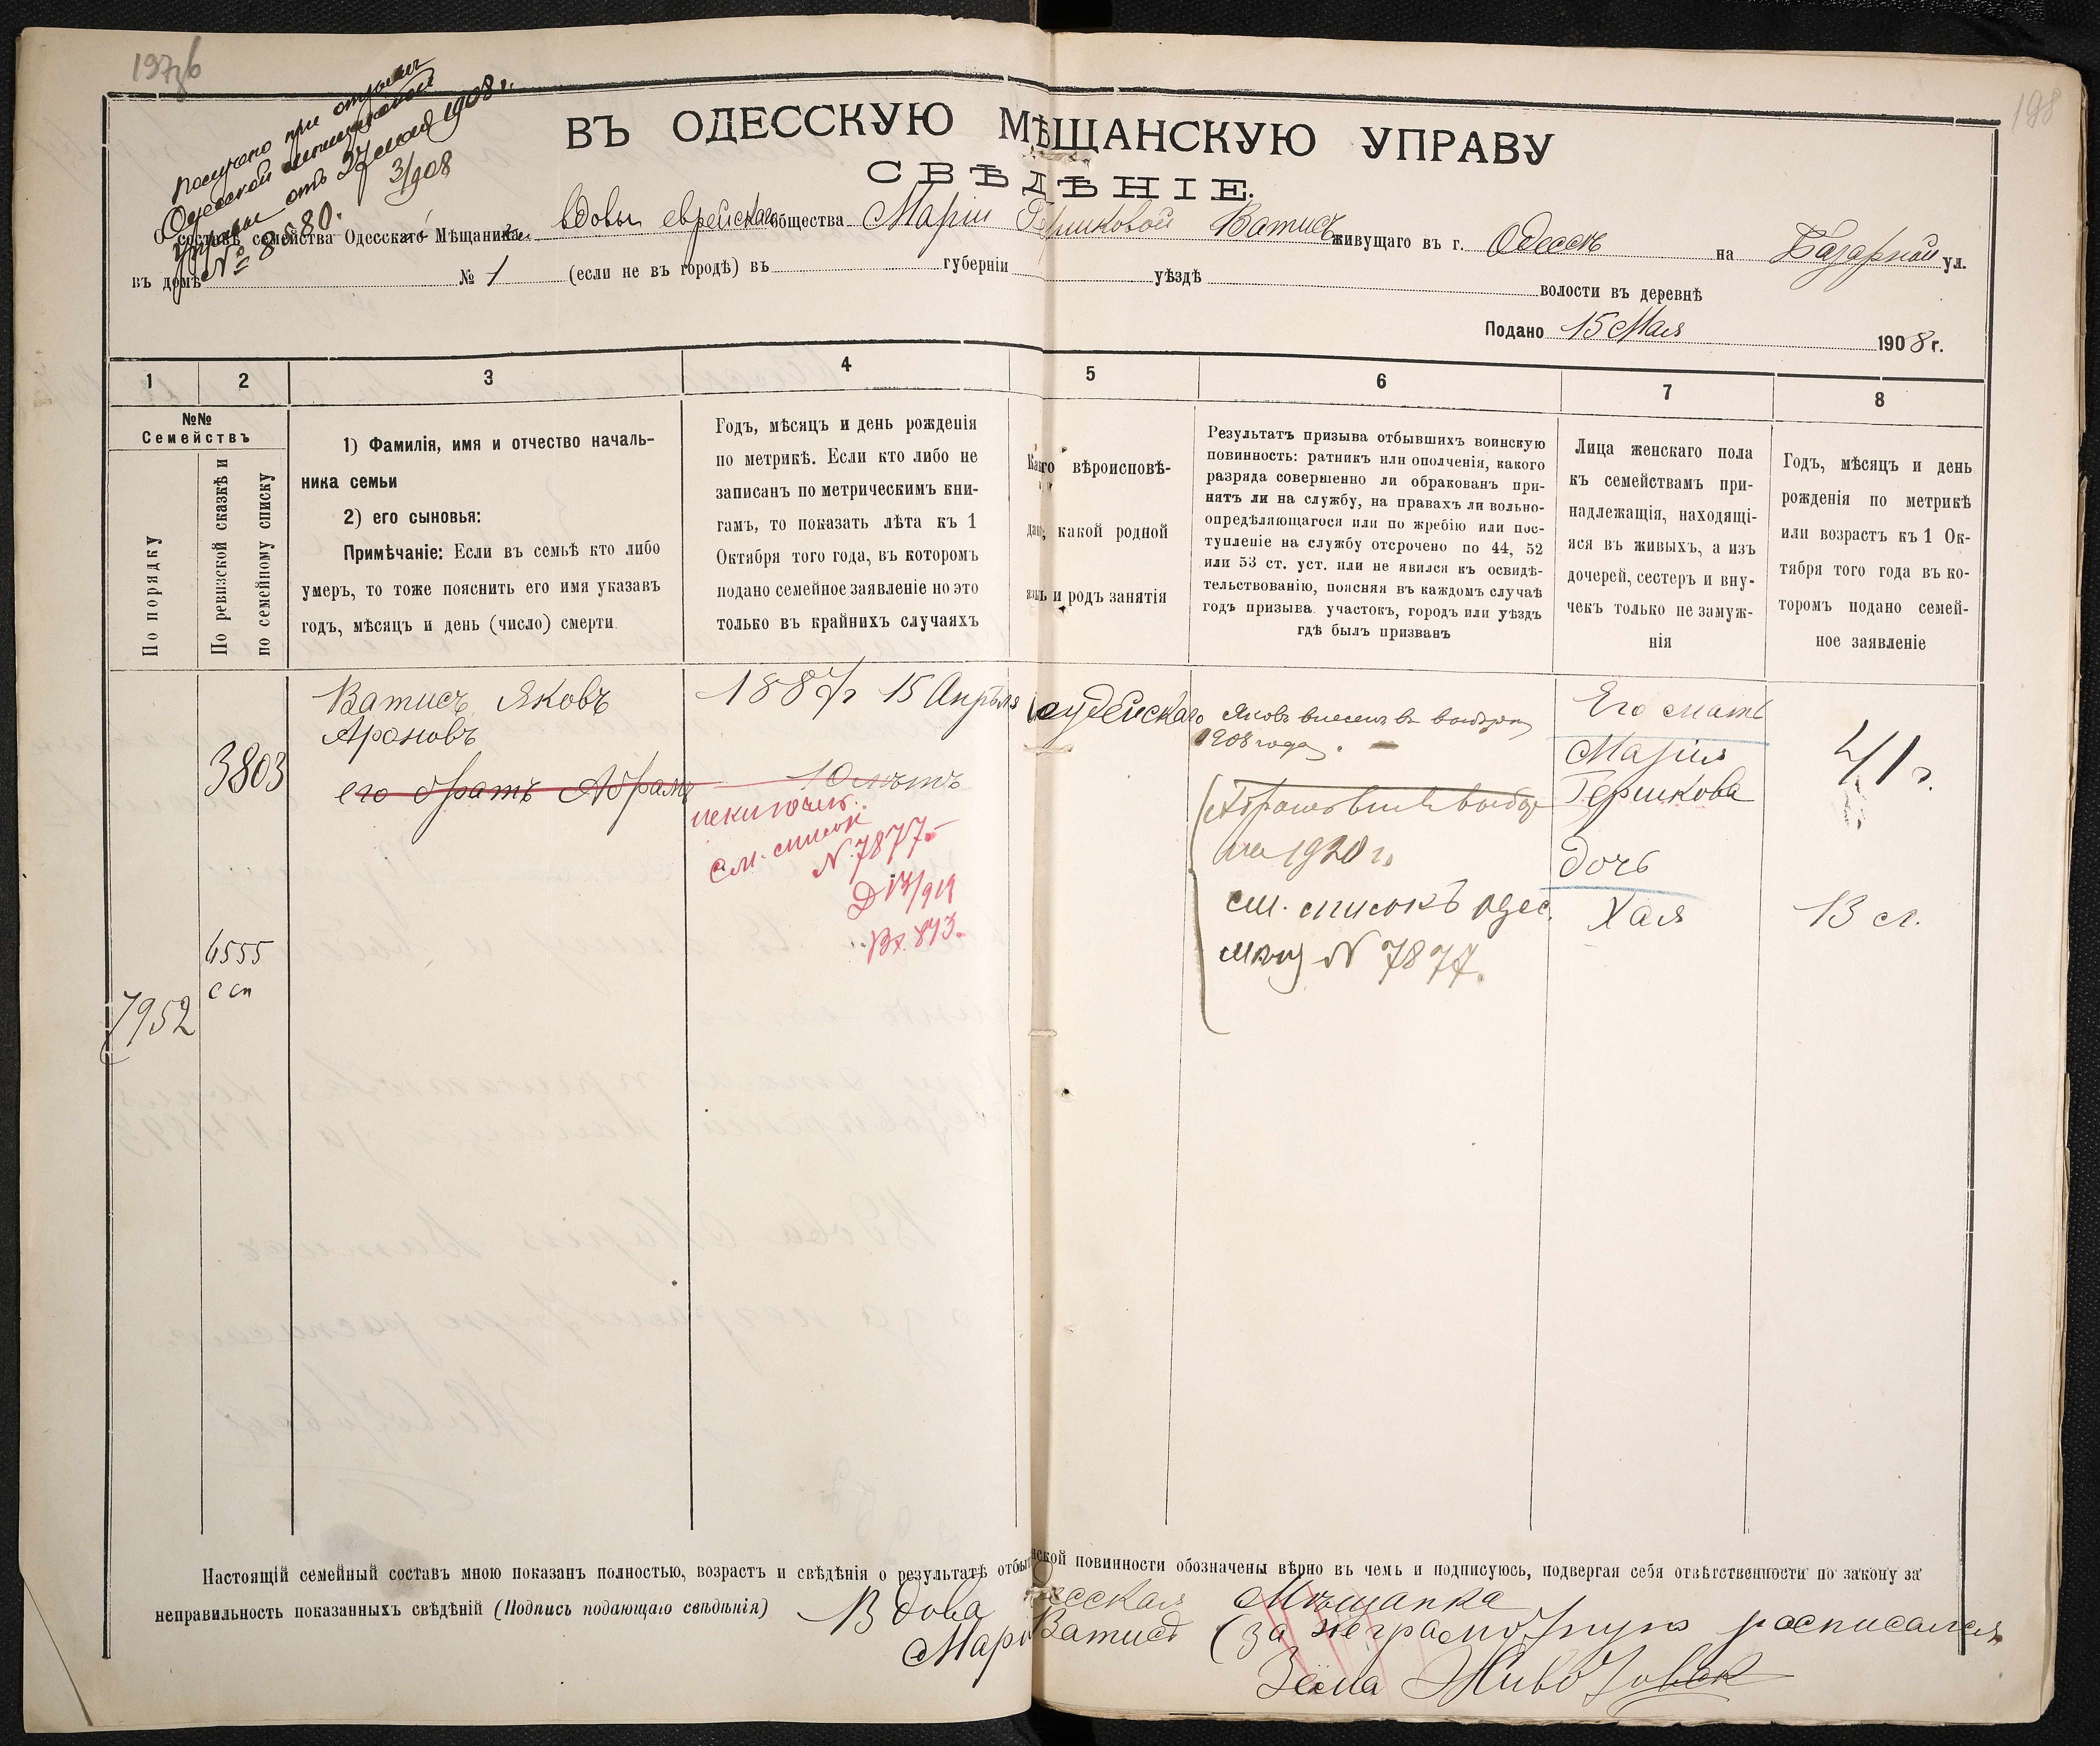 197
198
Получено при
Одесской мѣщанской
управы отъ 27 мая 1908 г.
№ 8880.
3/908
ВЪ ОДЕССКУЮ МѢЩАНСКУЮ УПРАВУ
СВѢДѢНІЕ.
О составѣ семейства Одесскаго Мѣщанина вдовы еврейскаго общества Маріи Гершковой Ватисъ живущаго въ г. Одессѣ на Базарной ул.
въ домѣ № 1 (если не въ городѣ) въ губерніи уѣздѣ волости въ деревнѣ
Подано 15 Мая 1908 г.
1 2 3 4 5 6 7 8
№№
Семействъ
По порядку
По ревизской сказкѣ и
по семейному списку
1) Фамилія, имя и отчество началь-
ника семьи
2) его сыновья:
Примѣчаніе: Если въ семьѣ кто либо
умеръ, то тоже пояснить его имя указавъ
годъ, мѣсяцъ и день (число) смерти
Годъ, мѣсяцъ и день рожденія
по метрикѣ. Если кто либо не
записанъ по метрическимъ кни-
гамъ, то показать лѣта къ 1
Октября того года, въ которомъ
подано семейное заявленіе но это
только въ крайнихъ случаяхъ
Какого вѣроисповѣ-
данія, какой родной
языкъ и родъ занятія
Результатъ призыва отбывшихъ воинскую
повинность: ратникъ или ополченія, какого
разряда совершенно ли обракованъ при-
нятъ ли на службу, на правахъ ли вольно-
опредѣляющагося или по жребію или пос-
тупленіе на службу отсрочено по 44, 52
или 53 ст. уст. или не явился къ освидѣ-
тельствованію, поясняя въ каждомъ случаѣ
годъ призыва. участокъ, городъ или уѣздъ
гдѣ былъ призванъ
Лица женскаго пола
къ семействамъ при-
надлежащія, находящі-
яся въ живыхъ, а изъ
дочерей, сестеръ и вну-
чекъ только не замуж-
нія
Годъ, мѣсяцъ и день
рожденія по метрикѣ
или возрастъ къ 1 Ок-
тября того года въ ко-
торомъ подано семей-
ное заявленіе
7952
3803
6555
с сп
Ватисъ Яковъ
Ароновъ
его братъ Абрамъ
1887 г 15 Апрѣля
10 лѣтъ
исключенъ
см. список
N. 7877.
Д 13/919
Вх. 893.
іудейскаго
Яковъ внесенъ въ
1908 года.
на 1920 г.
см. списокъ одес.
мѣщ N 7877.
Его мать
Марія
Гершкова
дочь
Хая
41 г
13 л.
Настоящій семейный составъ мною показанъ полностью, возрастъ и свѣдѣнія о результатѣ отбытія воинской повинности обозначены вѣрно въ чемъ и подписуюсь, подвергая себя отвѣтственности по закону за
неправильность показанныхъ свѣдѣній (Подпись подающаго свѣдѣнія) Вдова Одесская Мѣщанка
Марія Ватисъ (за неграмотную росписался
Зёма Животовск